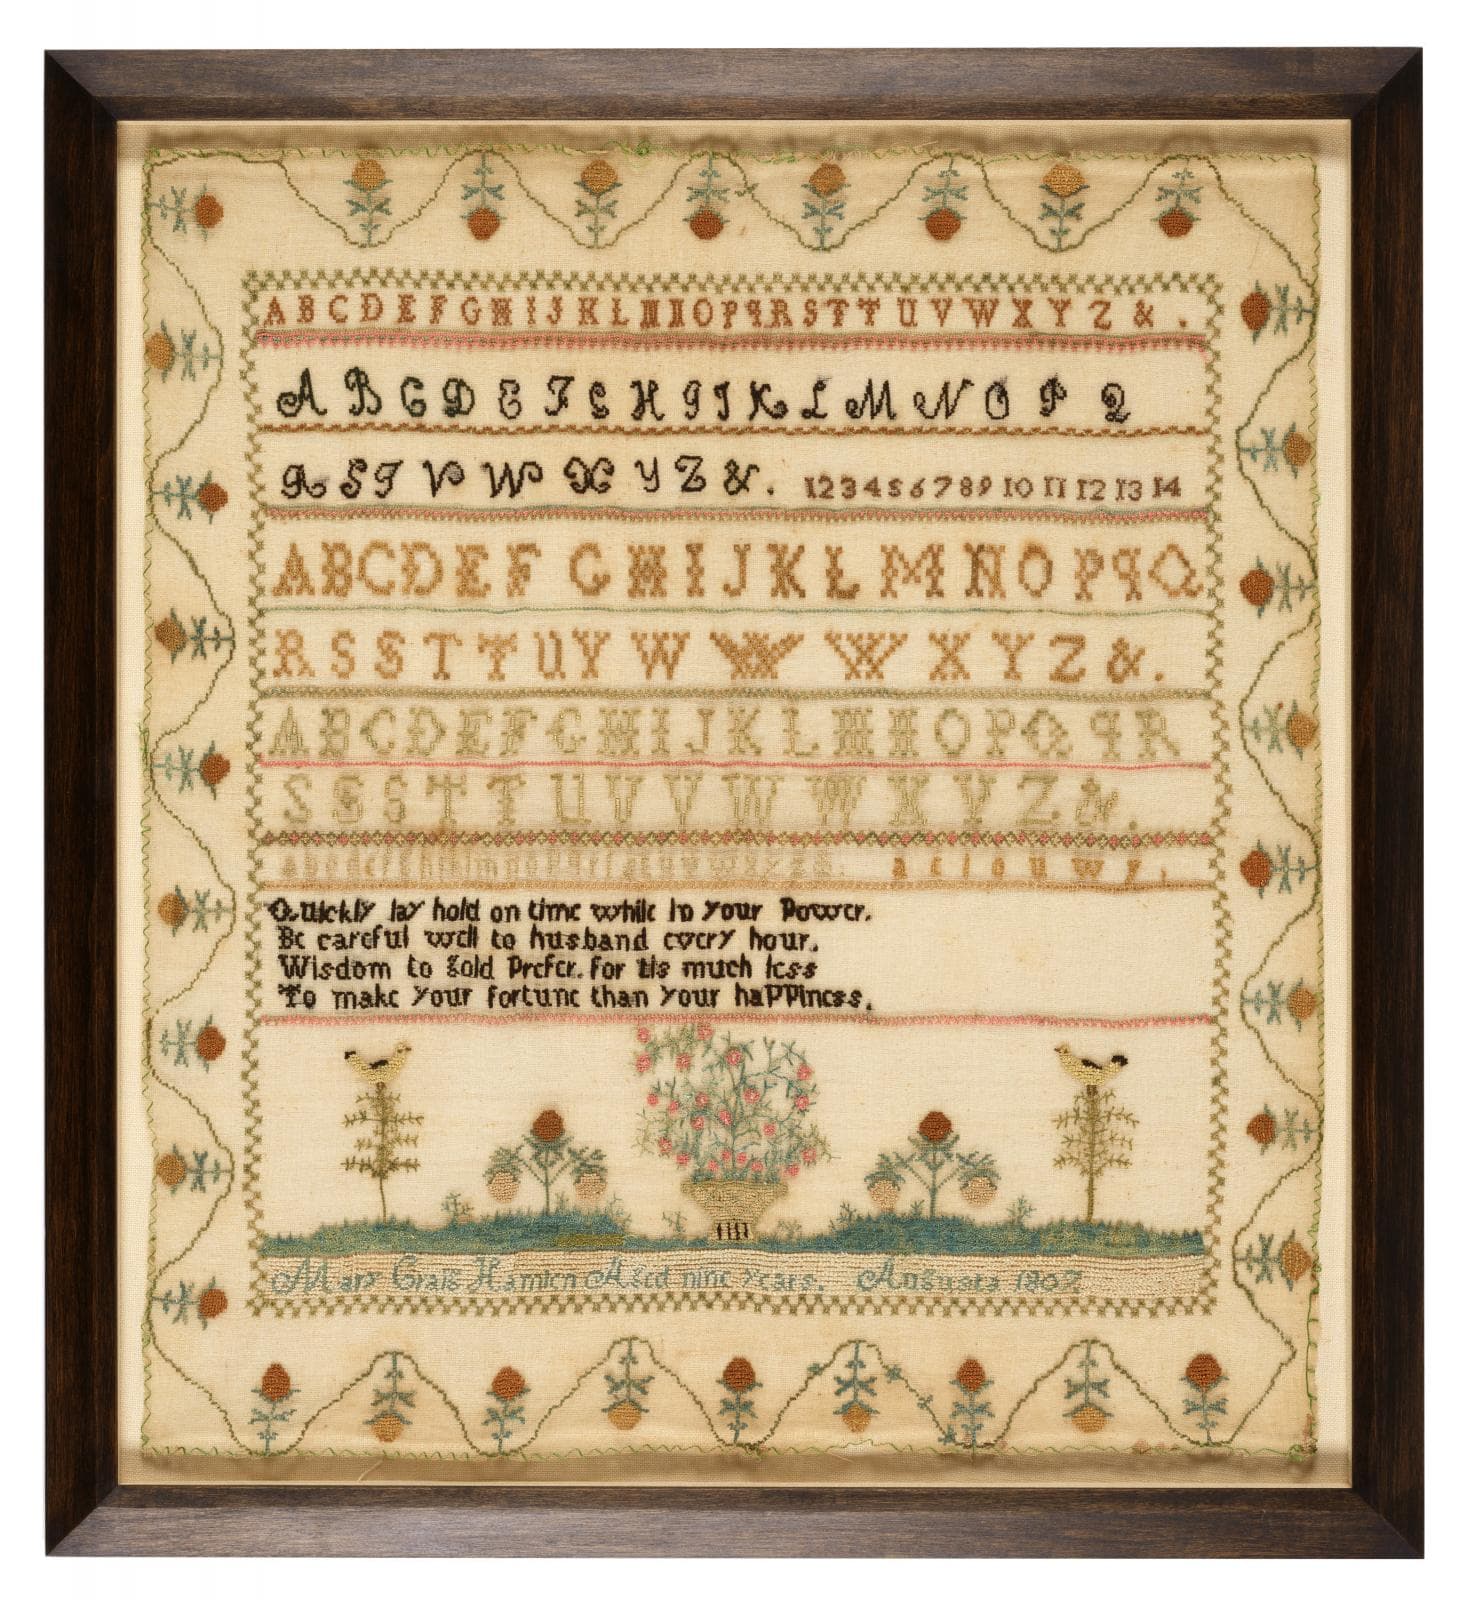 A B C D E F G H I J K L M N O P q R S T T U V W X Y Z & .
A B C D E F G H I J K L M N O P Q
R S T V W X Y Z & . 1 2 3 4 5 6 7 8 9 10 11 12 13 14
A B C D E F G H I J K L M N O P q Q
R S S T T U V W W W X Y Z & .
A B C D E F G H I J K L M N O P Q q R
S S S T T U V V W W X Y Z & .
a e i o u w y .
Quickly lay hold on time while in your Power.
Be careful well to husband every hour.
Wisdom to gold Prefer. for tis much less
To make your fortune than your haPPiness.
Mary Craig Hamlen Aged nine years. Augusta 1807